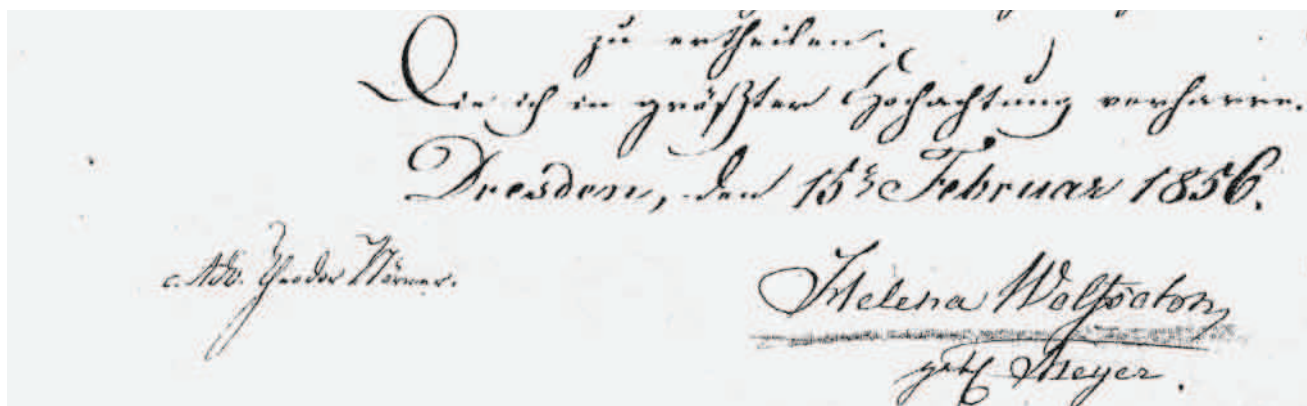 zu ertheilen.
Die ich in größter Hochachtung verharre.
Dresden, den 15t Februar 1856.
c. Adv. Theodor Körner.
Helena Wolfsohn
geb Meyer.